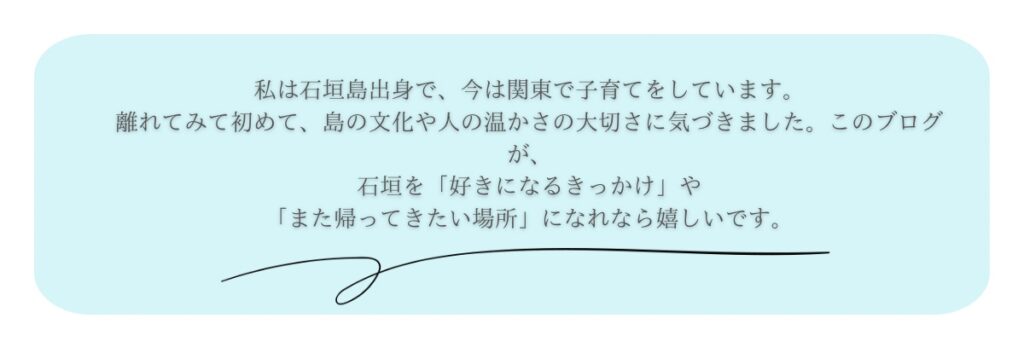 私は石垣島出身で、今は関東で子育てをしています。
離れてみて初めて、島の文化や人の温かさの大切さに気づきました。このブログ
が、
石垣を「好きになるきっかけ」や
「また帰ってきたい場所」になれなら嬉しいです。